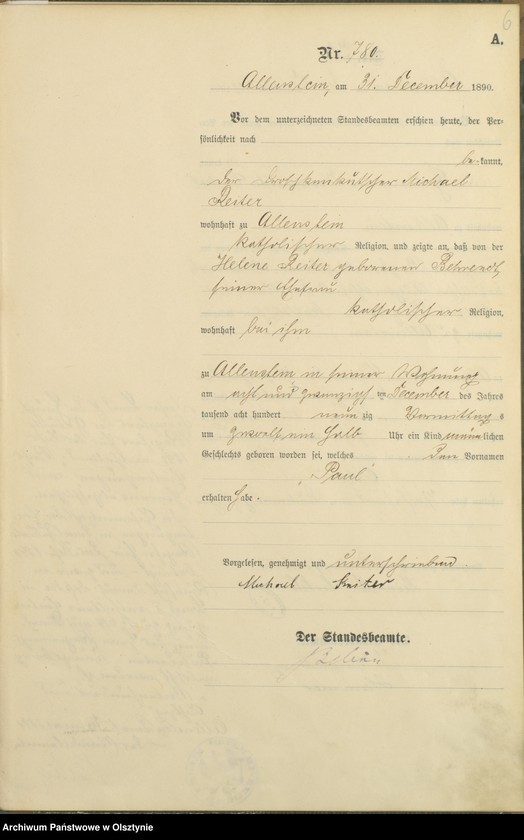 6
A.
Nr. 780.
Allenstein, am 31. December 1890.
Vor dem unterzeichneten Standesbeamten erschien heute, der Per-
sönlichkeit nach
be kannt,
der Droschkenkutscher Michael
Reiter
wohnhaft zu Allenstein
katholischer Religion, und zeigte an, daß von der
Helene Reiter geborenen Behrendt,
seiner Ehefrau
katholischer Religion,
wohnhaft bei ihm
zu Allenstein in seiner Wohnung
am acht und zwanzigsten December des Jahres
tausend acht hundert neun zig Vormittag s
um zwölf ein halb Uhr ein Kind männ lichen
Geschlechts geboren worden sei, welches den Vornamen
Paul
erhalten habe.
Vorgelesen, genehmigt und unterschrieben.
Michael Reiter
Der Standesbeamte.
Archiwum Państwowe w Olsztynie